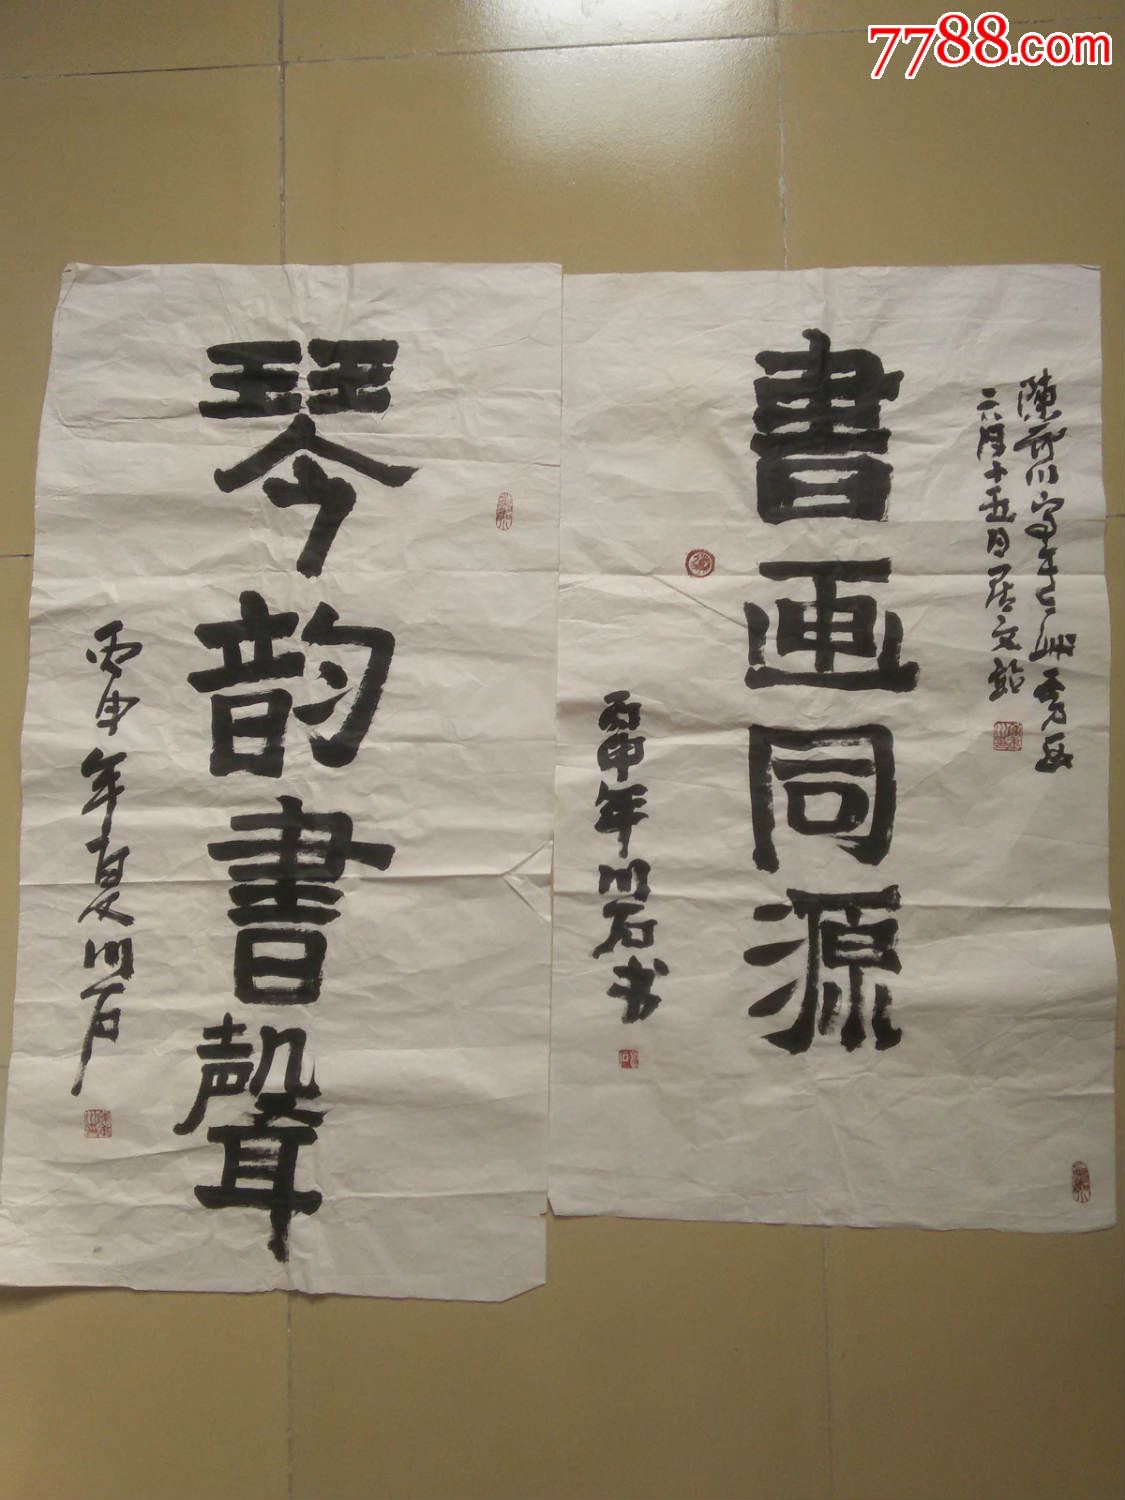 7788.com
六月十五日居文
書画同源
丙申年川石书
琴韵書聲
丙申年夏川石